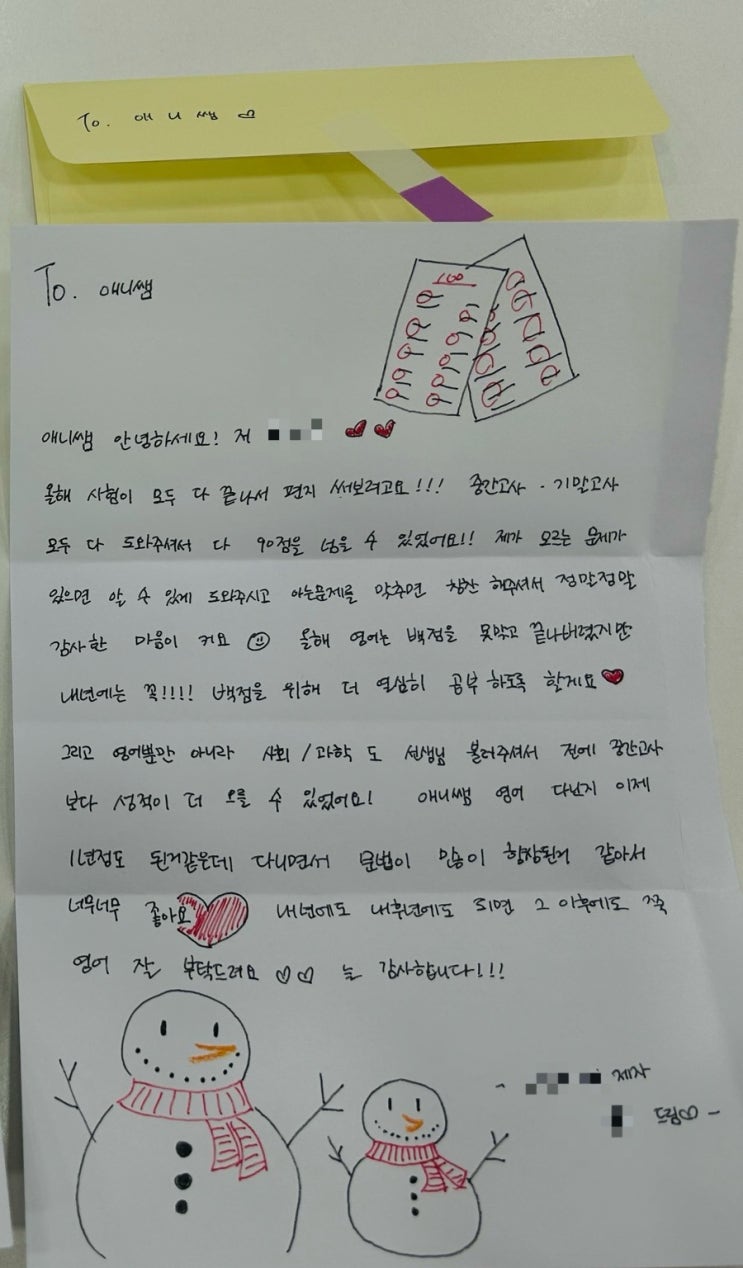 To. 애니쌤 ♡
To. 애니쌤
100
애니쌤 안녕하세요! 저 ♥♥
올해 시험이 모두 다 끝나서 편지 써보려고요!!! 중간고사 · 기말고사
모두 다 도와주셔서 다 90점을 넘을 수 있었어요!! 제가 모르는 문제가
있으면 알 수 있게 도와주시고 아는문제를 맞추면 칭찬 해주셔서 정말정말
감사한 마음이 커요 ☺ 올해 영어는 백점을 못맞고 끝나버렸지만
내년에는 꼭!!!! 백점을 위해 더 열심히 공부 하도록 할게요♥
그리고 영어뿐만 아니라 사회/과학 도 선생님 불러주셔서 전에 중간고사
보다 성적이 더 오를 수 있었어요! 애니쌤 영어 다닌지 이제
1년정도 된거같은데 다니면서 문법이 향상된거 같아서
너무너무 좋아요♥ 내년에도 내후년에도 되면 그 이후에도 꼭
영어 잘 부탁드려요 ♡♡ 늘 감사합니다!!!
- 제자
드림♡ -